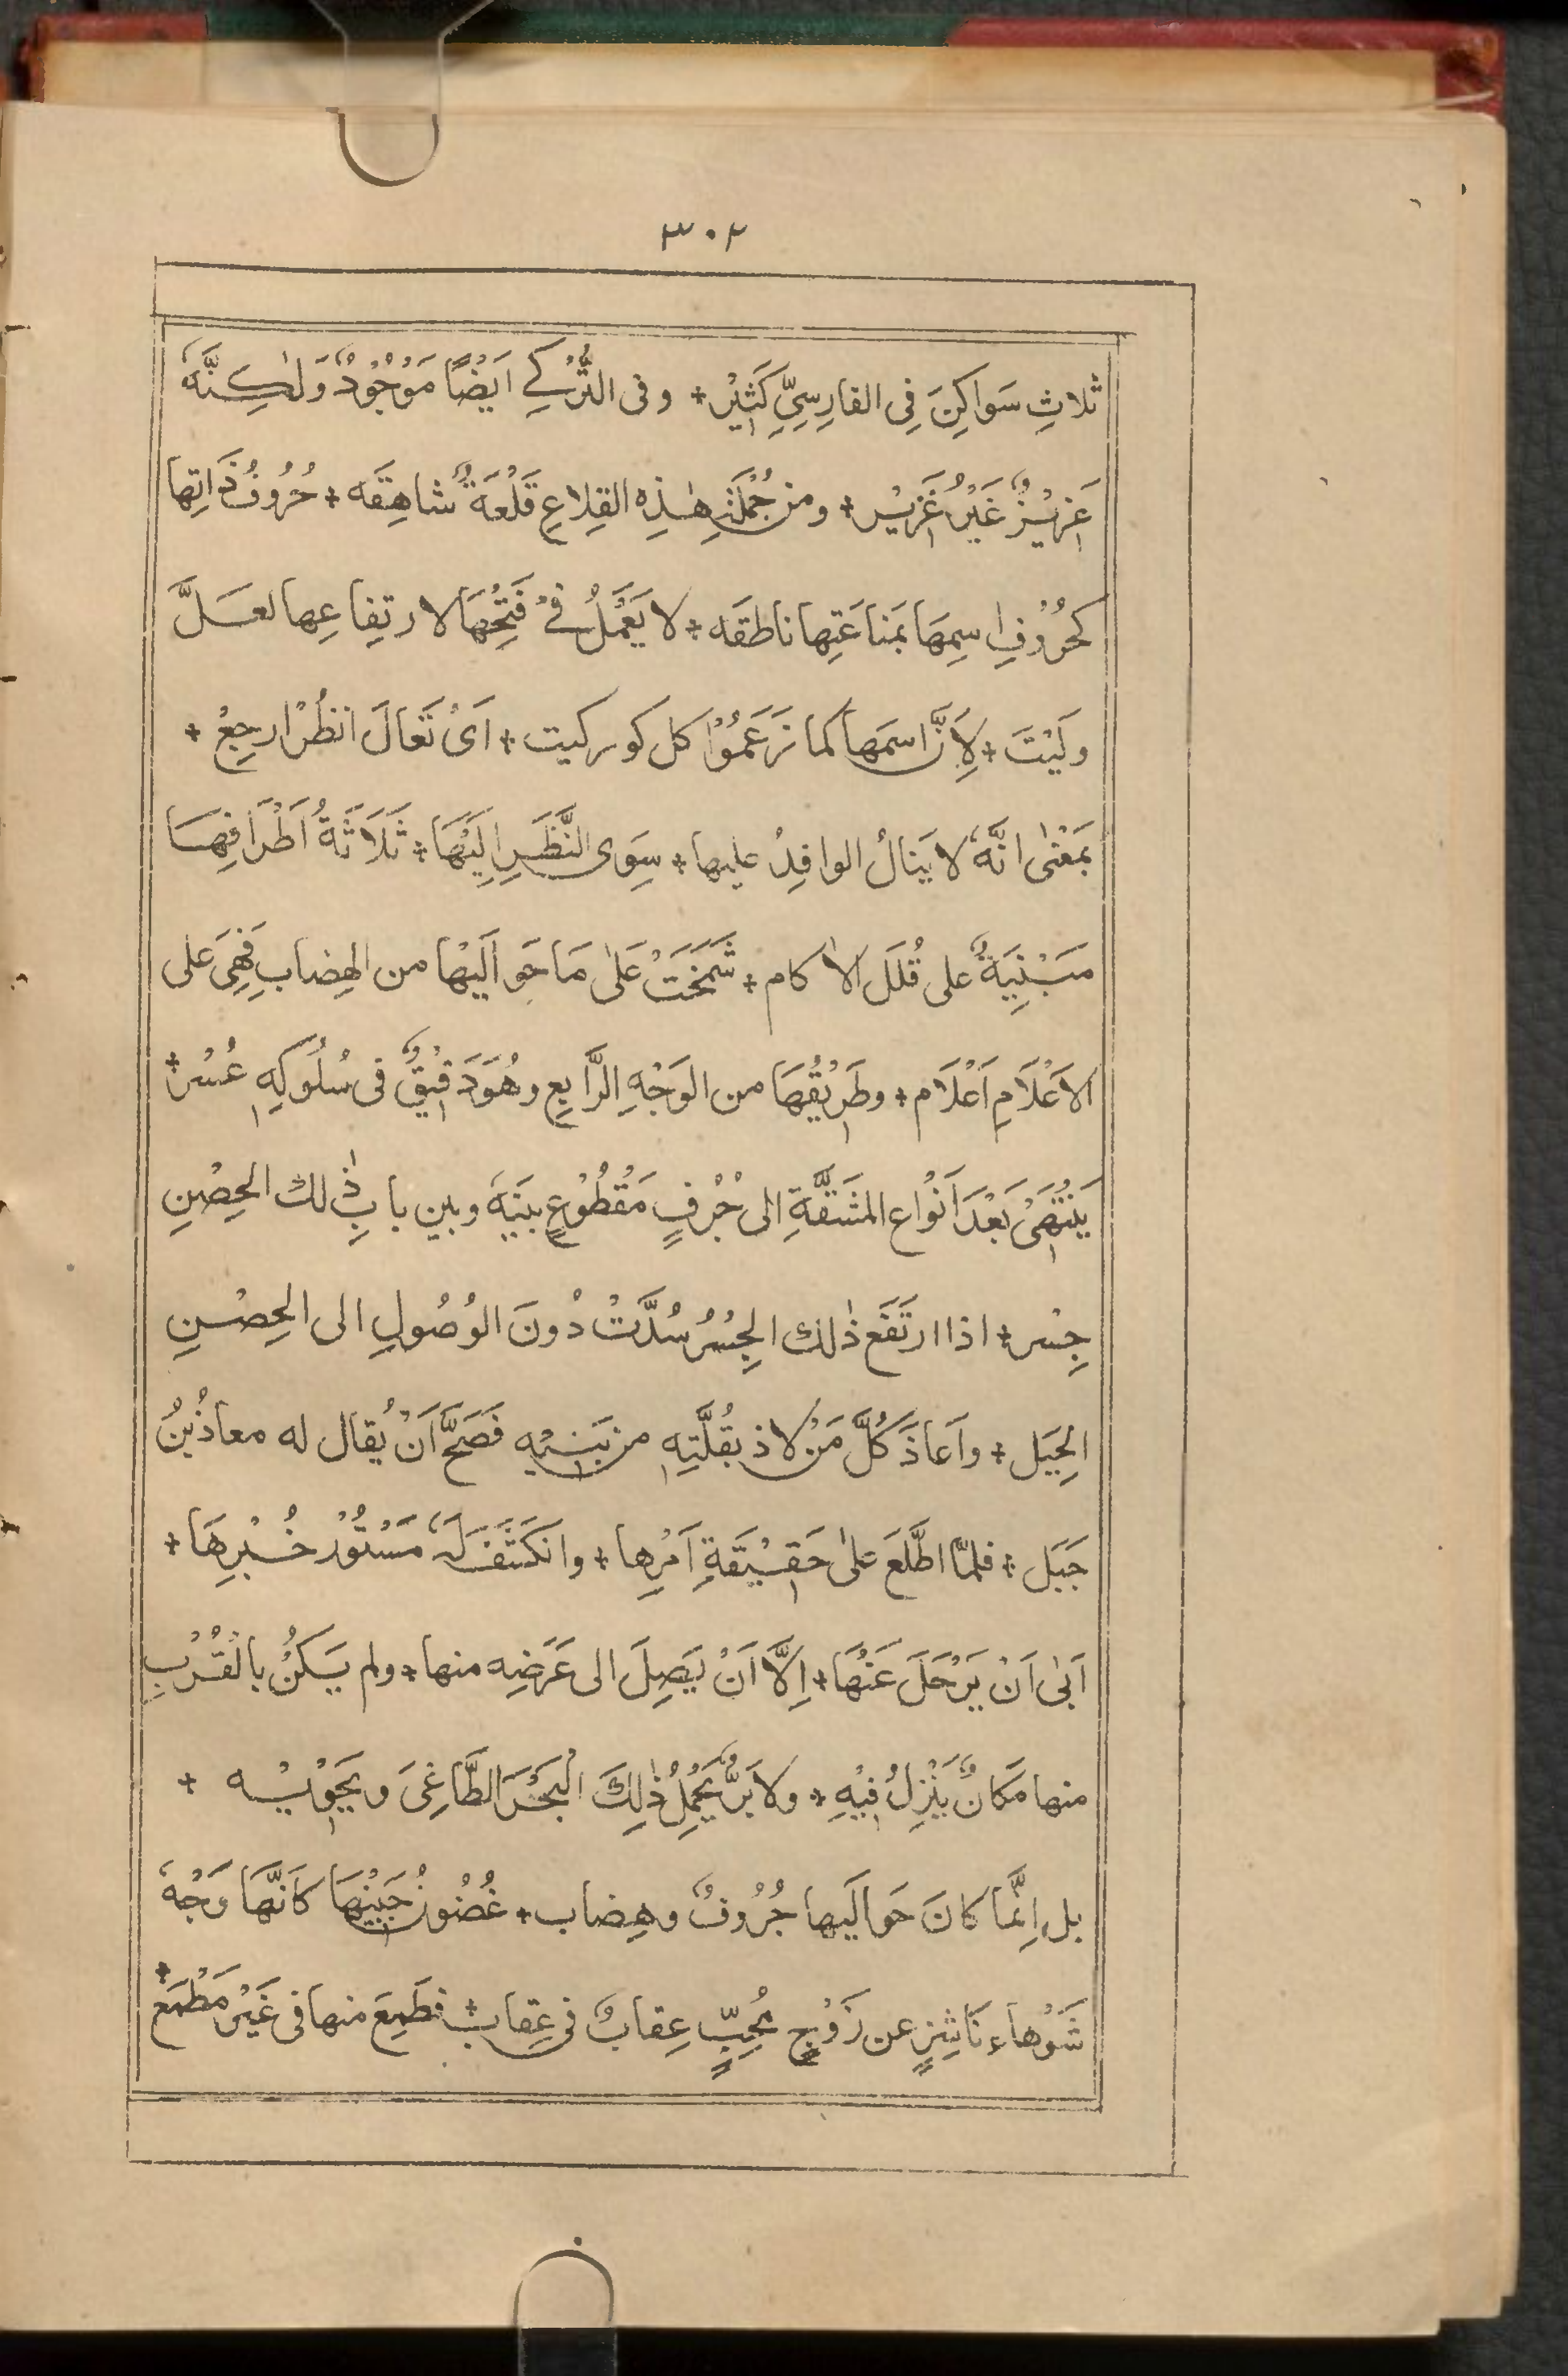 ٣٠٢
ثَلاثِ سَوَاكِنَ فِى الفارِسِىِّ كَثِيْر + وفى التُّرْكِے اَيْضًا مَوْجُوْدٌ وَلٰكِنَّهٗ
عَزِيْزٌ غَيْرُ غَزِيْر + ومن جُمْلَةِ هٰذِهِ القِلاعِ قَلْعَةٌ شاهِقَه + حُرُوفُ ذَاتِها
كَحُرُوْفِ اسِمِهَا بمَناعَتِها ناطقَه + لا يَعْمَلُ فِےْ فَتْحِهَا لارتِفاعِها لعَلَّ
ولَيْتَ + لِاَنَّ اسمَها كما زَعَمُوْا كل كور كيت + اَىْ تَعَالَ انظُرْ ارجِعْ +
بمَعْنٰى انَّهٗ لا يَنالُ الوافِدُ عليها + سِوَى النَّظَرِ اِلَيْهَا + ثَلَاثَةُ اَطْرَافِهَا
مَبْنِيَةٌ على قُلَلِ الاٰكام + شَمَخَتْ عَلٰى مَا حَوالَيْها من الهِضابِ فَهِىَ على
الاَعْلَامِ اَعْلَام + وطَرِيْقُهَا من الوَجْهِ الرَّابِعِ وهُوَ دَقِيْقٌ فى سُلُوكِهِ عُسْر +
يَنْتَهِىْ بَعْدَ اَنْوُاعِ المشَقَّةِ الى جُرْفٍ مَقْطُوْعٍ بينَهٗ وبين بابِ ذٰلك الحِصْنِ
جِسْر + اذا ارتَفَع ذٰلك الجِسْرُ سُدَّتْ دُونَ الوُصُولِ الى الحِصْنِ
الحِيَل + واَعاذَ كُلَّ مَنْ لاذ بقُلَّتِهِ من بَنِيْهِ فَصَحَّ اَنْ يُقال له معاذُ بنُ
جَبَل + فلمّا اطَّلَعَ علٰى حَقِيْقَةِ اَمْرِها + وانكَشَفَ لَهٗ مَسْتُوْرُ خُبْرِهَا +
اَبٰى اَنْ يَرْحَلَ عَنْهَا + اِلَّا اَنْ يَصِلَ الى غَرَضِه منها + ولم يَكُنْ بالْقُرْبِ
منها مَكانٌ يَنْزِلُ فِيْهِ + ولا بَرٌّ يَحْمِلُ ذٰلِكَ الْبَحْرَ الطَّاغِىَ ويَحْوِيْه +
بل اِنَّمَا كانَ حَوالَيها جُرُوفٌ وهِضاب + غُضُونُ جَبِيْنِهَا كَانَّهَا وَجْهُ
شَوْهاء نَاشِزٍ عن زَوْجٍ مُحِبٍّ عِقابٌ فى عِقاب + فطَمِعَ منها فى غَيْرِ مَطْمَعْ +